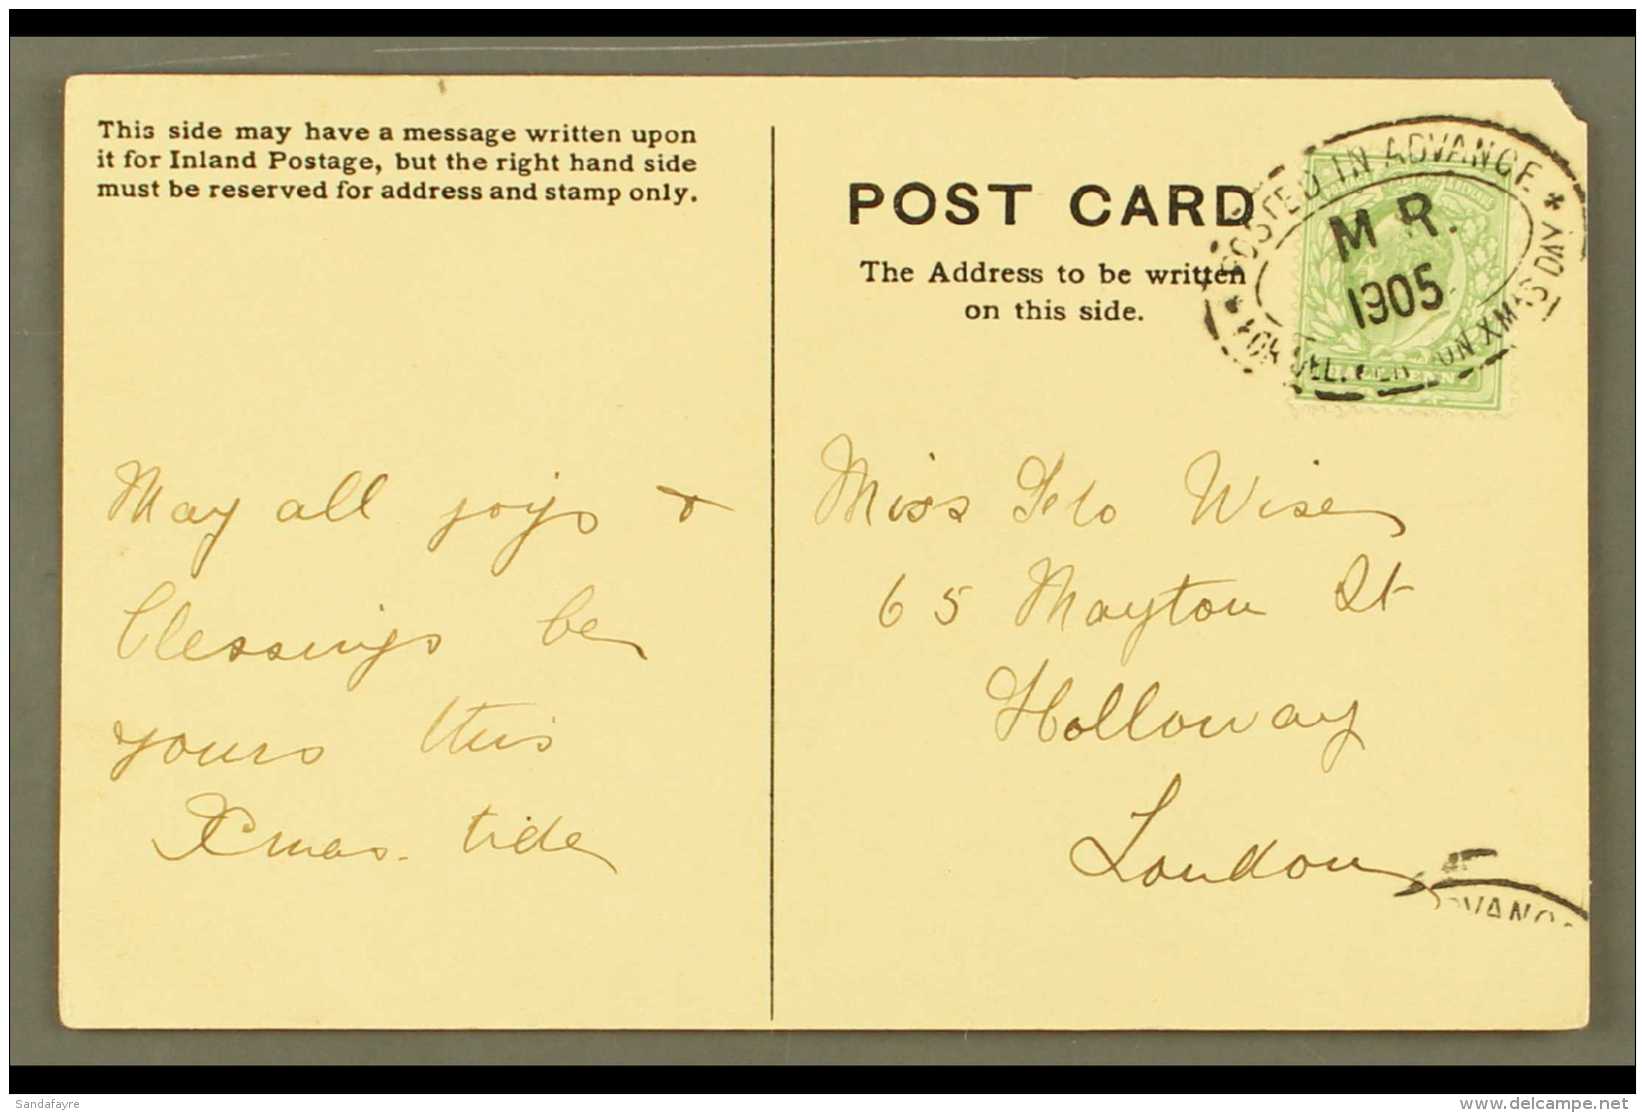 This side may have a message written upon
it for Inland Postage, but the right hand side
must be reserved for address and stamp only.
May all joys &
blessings be
yours this
Xmas. tide
POST CARD
The Address to be written
on this side.
POSTED IN ADVANCE *
M R.
1905
FOR DELIVERY ON XMAS DAY
HALFPENNY
Miss Flo Wise
65 Mayton St
Holloway
London
Sandafayre
www.delcampe.net